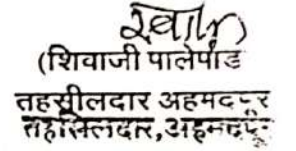 (शिवाजी पालेपाड
तहसीलदार अहमदपूर
तहसिलदार, अहमदपूर